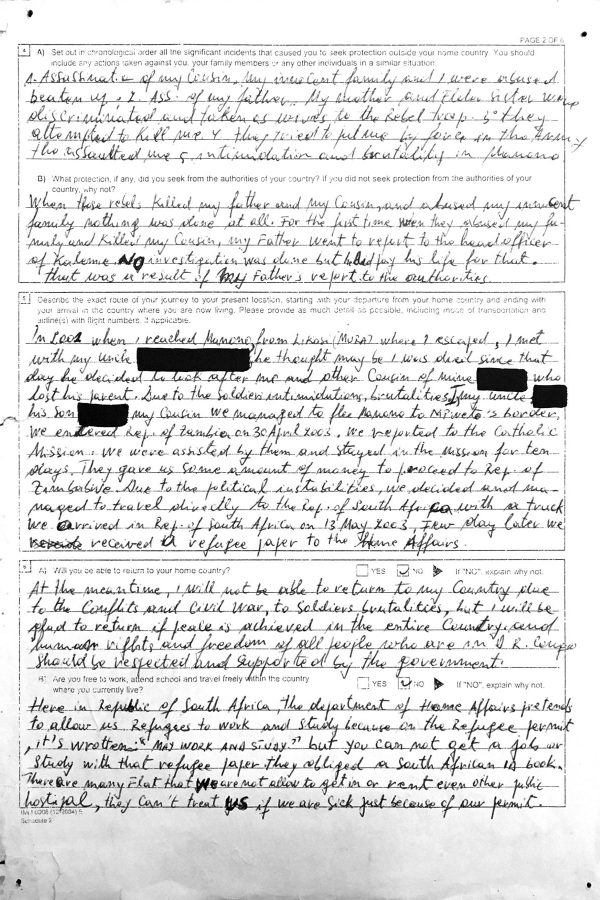 PAGE 2 OF 6
4 A) Set out in chronological order all the significant incidents that caused you to seek protection outside your home country. You should
include any actions taken against you, your family members or any other individuals in a similar situation.
of my Cousin, my innocent family and I were abused
beaten up. 2. Ass. of my father. My mother and Elder Sister were
discriminated and taken as wives to the Rebel troop. 3° they
attempted to Kill me 4 they tried to put me by force in the Army
the assaulted me 5, intimidation and brutality in Manono
B) What protection, if any, did you seek from the authorities of your country? If you did not seek protection from the authorities of your
country, why not?
When those rebels Killed my father and my Cousin, and abused my innocent
family nothing was done at all. For the first time when they abused my fa-
mily and Killed my Cousin, my Father went to report to the head officer
of Kalemie. NO investigation was done but he pay his life for that.
that was a result of my Father's report to the authorities.
5 Describe the exact route of your journey to your present location, starting with your departure from your home country and ending with
your arrival in the country where you are now living. Please provide as much detail as possible, including mode of transportation and
airline(s) with flight numbers, if applicable.
In 2001 when I reached Manono, from Likasi where I escaped, I met
with my uncle he thought may be I was died since that
day he decided to look after me and other Cousin of mine who
lost his parent. Due to the Soldiers intimidations, brutalities, I, my uncle
his son my Cousin we managed to flee Manono to border,
We entered Rep. of Zambia on 30 April 2003. We reported to the Catholic
Mission. We were assisted by them and stayed in the mission for ten
days. They gave us some amount of money to proceed to Rep. of
Zimbabwe. Due to the political instabilities, we decided and ma-
naged to travel directly to the Rep. of South Africa with a truck
We arrived in Rep. of South Africa on 13 May 2003, Few day later we
received a refugee paper to the Home Affairs.
6 A) Will you be able to return to your home country? YES NO If "NO", explain why not.
At the meantime, I will not be able to return to my Country due
to the Conflits and Civil War, to Soldiers brutalities, but I will be
glad to return if peace is achieved in the entire Country, and
human rights and freedom of all people who are in D R. Congo
should be respected and supported by the government.
B) Are you free to work, attend school and travel freely within the country YES NO If "NO", explain why not.
where you currently live?
Here in Republic of South Africa, the department of Home Affairs pretends
to allow us Refugees to work and study because on the Refugee permit
, it's wrotten: "MAY WORK AND STUDY." but you can not get a job or
study with that refugee paper they obliged a South African ID book.
There are many Flat that we are not allow to get in or rent even other public
hospital, they can't treat us if we are sick just because of our permit.
Schedule 2